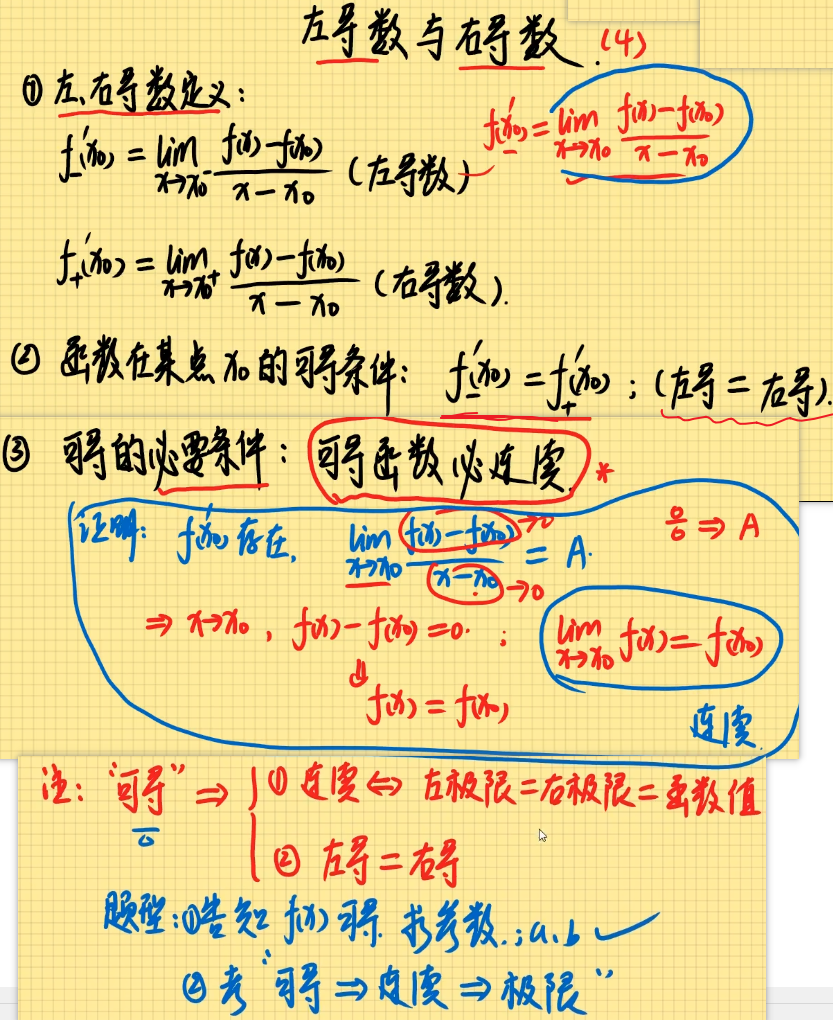 左导数与右导数.(4)
① 左、右导数定义:
f₋′(x₀) = lim x→x₀⁻ (f(x)-f(x₀))/(x-x₀) (左导数)
f′(x₀) = lim x→x₀ (f(x)-f(x₀))/(x-x₀)
f₊′(x₀) = lim x→x₀⁺ (f(x)-f(x₀))/(x-x₀) (右导数).
② 函数在某点x₀的可导条件: f₋′(x₀) = f₊′(x₀) ; (左导 = 右导).
③ 可导的必要条件: 可导函数必连续. *
证明: f′(x₀)存在, lim x→x₀ (f(x)-f(x₀))/(x-x₀) = A. →0 →0 0/0 ⇒ A
⇒ x→x₀, f(x)-f(x₀)=0. ; lim x→x₀ f(x) = f(x₀)
⇓
f(x) = f(x₀)
连续.
注: "可导" ⇒ { ① 连续 ⇔ 左极限=右极限=函数值
② 左导 = 右导
题型: ①告知f(x)可导.求参数.; a、b ✓
② 考"可导 ⇒ 连续 ⇒ 极限"